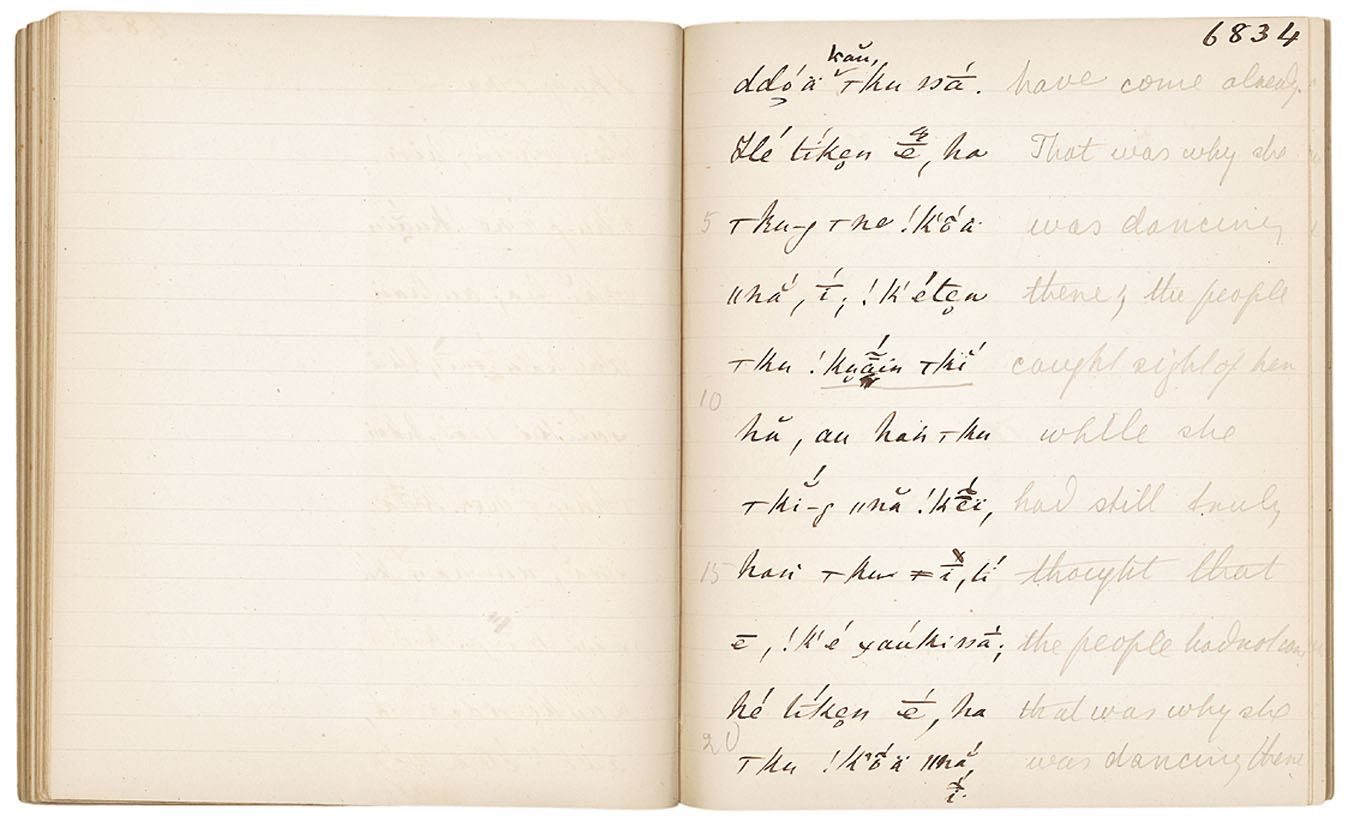 6834
kău,
ddóä ⊤ku ssā́. have come already.
Hé tíken ē, ha That was why she
5 ⊤ku-g ⊤ne !k'ṓä was dancing
ǁnắ, ī́; !k'éten there; the people
⊤ku !kuā́in ⊤kĭ́ caught sight of her
10
hă, au hań ⊤ku while she
⊤kĭ́-g ǁnă !kḗï, had still truly
15 hań ⊤ku ǂī, tí thought that
ē, !k'é χaúki ssā́; the people had not come
hé tíken ḗ, ha that was why she
20 ⊤ku !k'ṓä ǁnắ, was dancing there
ī́.